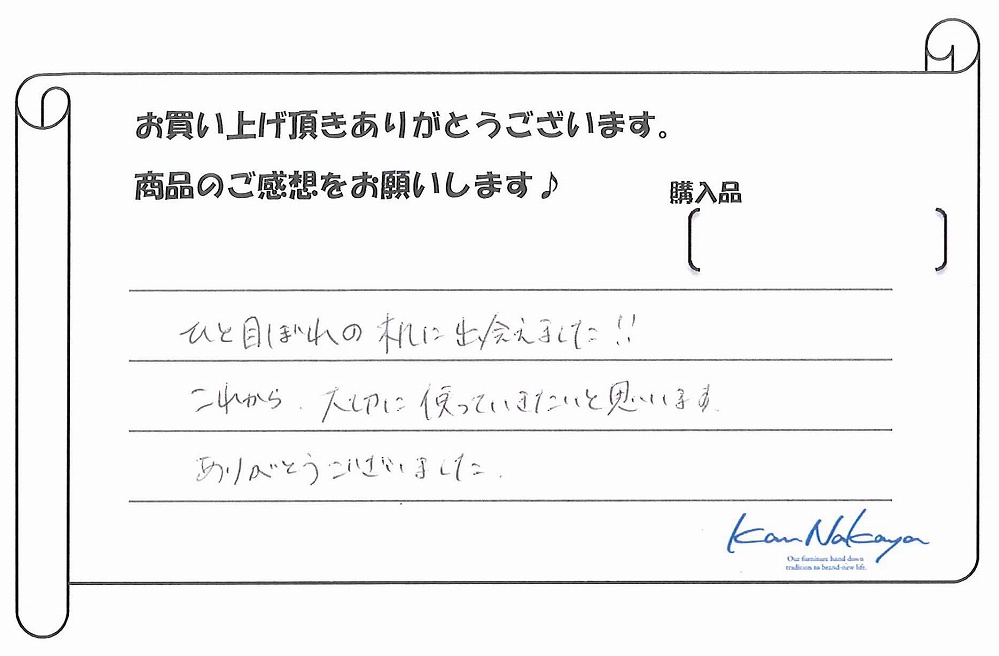 お買い上げ頂きありがとうございます。
商品のご感想をお願いします♪
購入品
ひと目ぼれの机に出会えました!!
これから、大切に使っていきたいと思います。
ありがとうございました。
Kan Nakaya
Our furniture hand down
tradition to brand-new life.